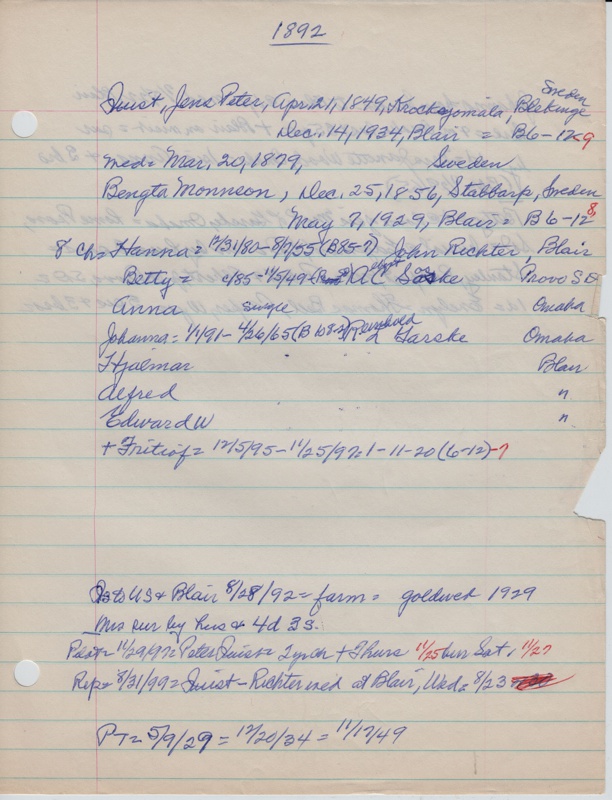 1892
Quist, Jens Peter, Apr. 21, 1849, Krockojomala, Blekinge Sweden
Dec. 14, 1934, Blair = B6-12-9
med = Mar. 20, 1879, Sweden
Bengta Monneon, Dec. 25, 1856, Stabbarp, Sweden
May 7, 1929, Blair = B6-12-8
8 ch = Hanna = 12/31/80 - 8/7/55 (B85-7) John Richter, Blair
Betty = c/85 - 1/5/49 A C Saske Provo SD
Anna single Omaha
Johanna = 1/1/91 - 4/26/65 Reinhold Garske Omaha
Hjalmar Blair
Alfred "
Edward W "
+ Fritiof = 12/5/95 - 11/25/97 = 1-11-20 (6-12)-7
to US & Blair 8/28/92 = farm = goldwed 1929
Mrs sur by hus & 4d 3s.
Pilot = 11/29/97 = Peter Quist = 2 yr ch + Thurs 11/25 bur Sat, 11/27
Rep = 8/31/99 = Quist - Richter wed at Blair, Wed = 8/23
PT = 5/9/29 = 12/20/34 = 11/17/49